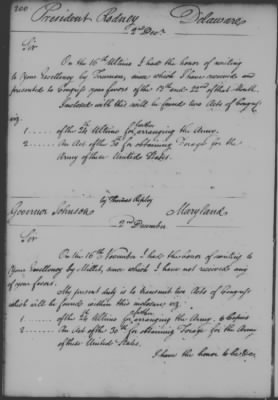 200
President Rodney Delaware
2d Decr.
Sir
On the 16th Ultimo I had the honor of writing
to Your Excellency by Freeman, since which I have received and
presented to Congress your favors of the 13th and 22nd of that Month.
Inclosed with this will be found two Acts of Congress
viz.
1 of the 24 Ultimo for farther arranging the Army.
2 An Act of the 30 for obtaining Forage for the
Army of these United States.
by Thomas Ripley
Governor Johnson Maryland
2nd December
Sir
On the 16th November I had the honor of writing to
Your Excellency by Millet, since which I have not received any
of your favors.
My present duty is to transmit two Acts of Congress
which will be found within this inclosure viz.
1 of the 24 Ultimo for farther arranging the Army. 6 Copies
2 An Act of the 30th for obtaining Forage for the Army
of these United States.
I have the honor to be &ca.